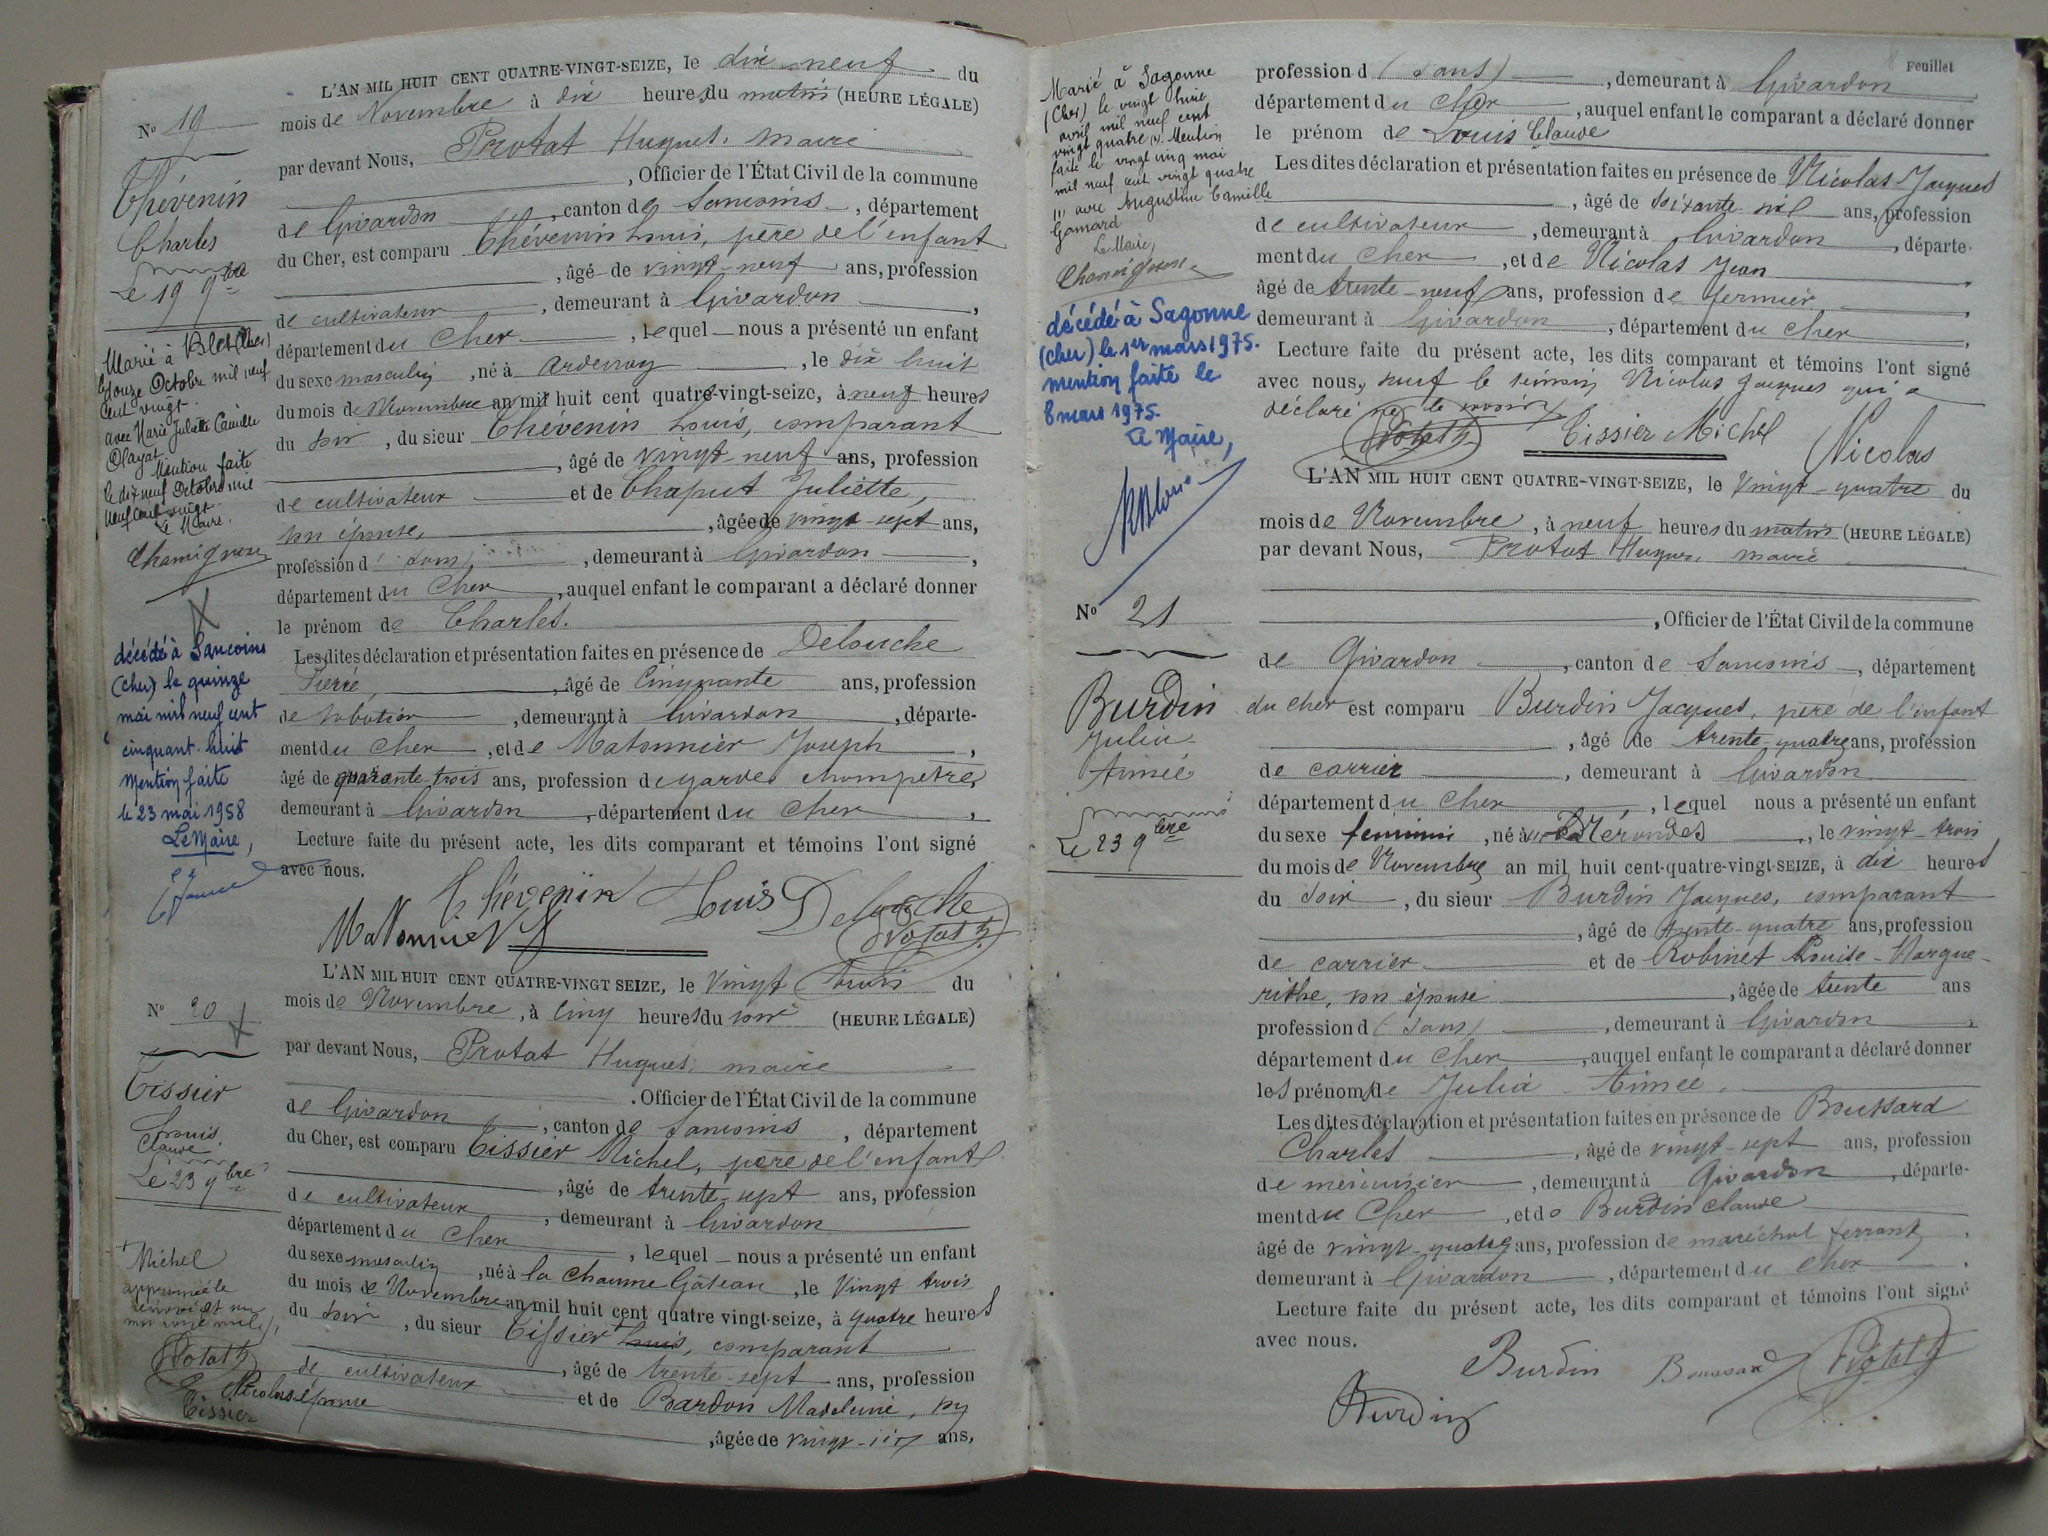 L'AN MIL HUIT CENT QUATRE-VINGT-SEIZE, le dix neuf du
mois de Novembre à dix heures du matin (HEURE LÉGALE)
par devant Nous, Protat Hugues, maire
, Officier de l'État Civil de la commune
de Givardon, canton de Sancoins, département
du Cher, est comparu Thévenin Louis, père de l'enfant
, âgé de vingt-neuf ans, profession
de cultivateur, demeurant à Givardon,
département du Cher, lequel nous a présenté un enfant
du sexe masculin, né à Ardenay, le dix huit
du mois de Novembre an mil huit cent quatre-vingt-seize, à neuf heures
du soir, du sieur Thévenin Louis, comparant
, âgé de vingt neuf ans, profession
de cultivateur et de Chaput Juliette,
son épouse, âgée de vingt-sept ans,
profession d (sans), demeurant à Givardon,
département du Cher, auquel enfant le comparant a déclaré donner
le prénom de Charles.
Les dites déclaration et présentation faites en présence de Delouche
Pierre, âgé de cinquante ans, profession
de sabotier, demeurant à Givardon, départe-
ment du Cher, et de Matonnier Joseph,
âgé de quarante-trois ans, profession de garde champêtre,
demeurant à Givardon, département du Cher,
Lecture faite du présent acte, les dits comparant et témoins l'ont signé
avec nous.
Thévenin Louis Delouche
Matonnier Protat H
No 19
Thévenin
Charles
Le 19 9bre
Marié à Blet (Cher)
le douze Octobre mil neuf
cent vingt
avec Marie Juliette Camille
Olayat
Mention faite
le dix neuf Octobre mil
neuf cent vingt
Le Maire,
Chamignon
décédé à Sancoins
(cher) le quinze
mai mil neuf cent
cinquant-huit
Mention faite
le 23 mai 1958
Le Maire,
L'AN MIL HUIT CENT QUATRE-VINGT SEIZE, le vingt trois du
mois de Novembre, à cinq heures du soir (HEURE LÉGALE)
par devant Nous, Protat Hugues, maire
. Officier de l'État Civil de la commune
de Givardon, canton de Sancoins, département
du Cher, est comparu Tissier Michel, père de l'enfant
, âgé de trente-sept ans, profession
de cultivateur, demeurant à Givardon
département du Cher, lequel nous a présenté un enfant
du sexe masculin, né à la Chaume Gâteau, le vingt trois
du mois de Novembre an mil huit cent quatre vingt-seize, à quatre heures
du soir, du sieur Tissier Louis, comparant
, âgé de trente-sept ans, profession
de cultivateur et de Bardon Madeleine, son
épouse, âgée de vingt-six ans,
No 20
Tissier
Louis
Claude
Le 23 9bre
Michel
approuvé le
renvoi et un
mot rayé nul
Protat H
Nicolas
Tissier
Feuillet
profession d (sans), demeurant à Givardon
département du Cher, auquel enfant le comparant a déclaré donner
le prénom de Louis Claude
Les dites déclaration et présentation faites en présence de Nicolas Jacques
, âgé de soixante six ans, profession
de cultivateur, demeurant à Givardon, départe-
ment du Cher, et de Nicolas Jean
âgé de trente-neuf ans, profession de fermier,
demeurant à Givardon, département du Cher,
Lecture faite du présent acte, les dits comparant et témoins l'ont signé
avec nous, sauf le témoin Nicolas Jacques qui a
déclaré ne le savoir
Protat H Tissier Michel Nicolas
Marié à Sagonne
(Cher) le vingt huit
avril mil neuf cent
vingt quatre (1). Mention
faite le vingt cinq mai
mil neuf cent vingt quatre
(1) avec Augustine Camille
Gamard
Le Maire,
Chamignon
décédé à Sagonne
(cher) le 1er mars 1975.
mention faite le
8 mars 1975.
Le Maire,
L'AN MIL HUIT CENT QUATRE-VINGT-SEIZE, le vingt-quatre du
mois de Novembre, à neuf heures du matin (HEURE LÉGALE)
par devant Nous, Protat Hugues, maire
, Officier de l'État Civil de la commune
de Givardon, canton de Sancoins, département
du Cher est comparu Burdin Jacques, père de l'enfant
, âgé de trente-quatre ans, profession
de carrier, demeurant à Givardon
département du Cher, lequel nous a présenté un enfant
du sexe féminin, né à Mérondes, le vingt-trois
du mois de Novembre an mil huit cent-quatre-vingt-SEIZE, à dix heures
du soir, du sieur Burdin Jacques, comparant
, âgé de trente-quatre ans, profession
de carrier et de Robinet Louise-Margue-
rithe, son épouse, âgée de trente ans
profession d (sans), demeurant à Givardon,
département du Cher, auquel enfant le comparant a déclaré donner
les prénoms de Julia Aimée.
Les dites déclaration et présentation faites en présence de Boussard
Charles, âgé de vingt-sept ans, profession
de menuisier, demeurant à Givardon, départe-
ment du Cher, et de Burdin Claude
âgé de vingt-quatre ans, profession de maréchal ferrant,
demeurant à Givardon, département du Cher.
Lecture faite du présent acte, les dits comparant et témoins l'ont signé
avec nous.
Burdin Boussard Protat H
Burdin
No 21
Burdin
Julia
Aimée
Le 23 9bre